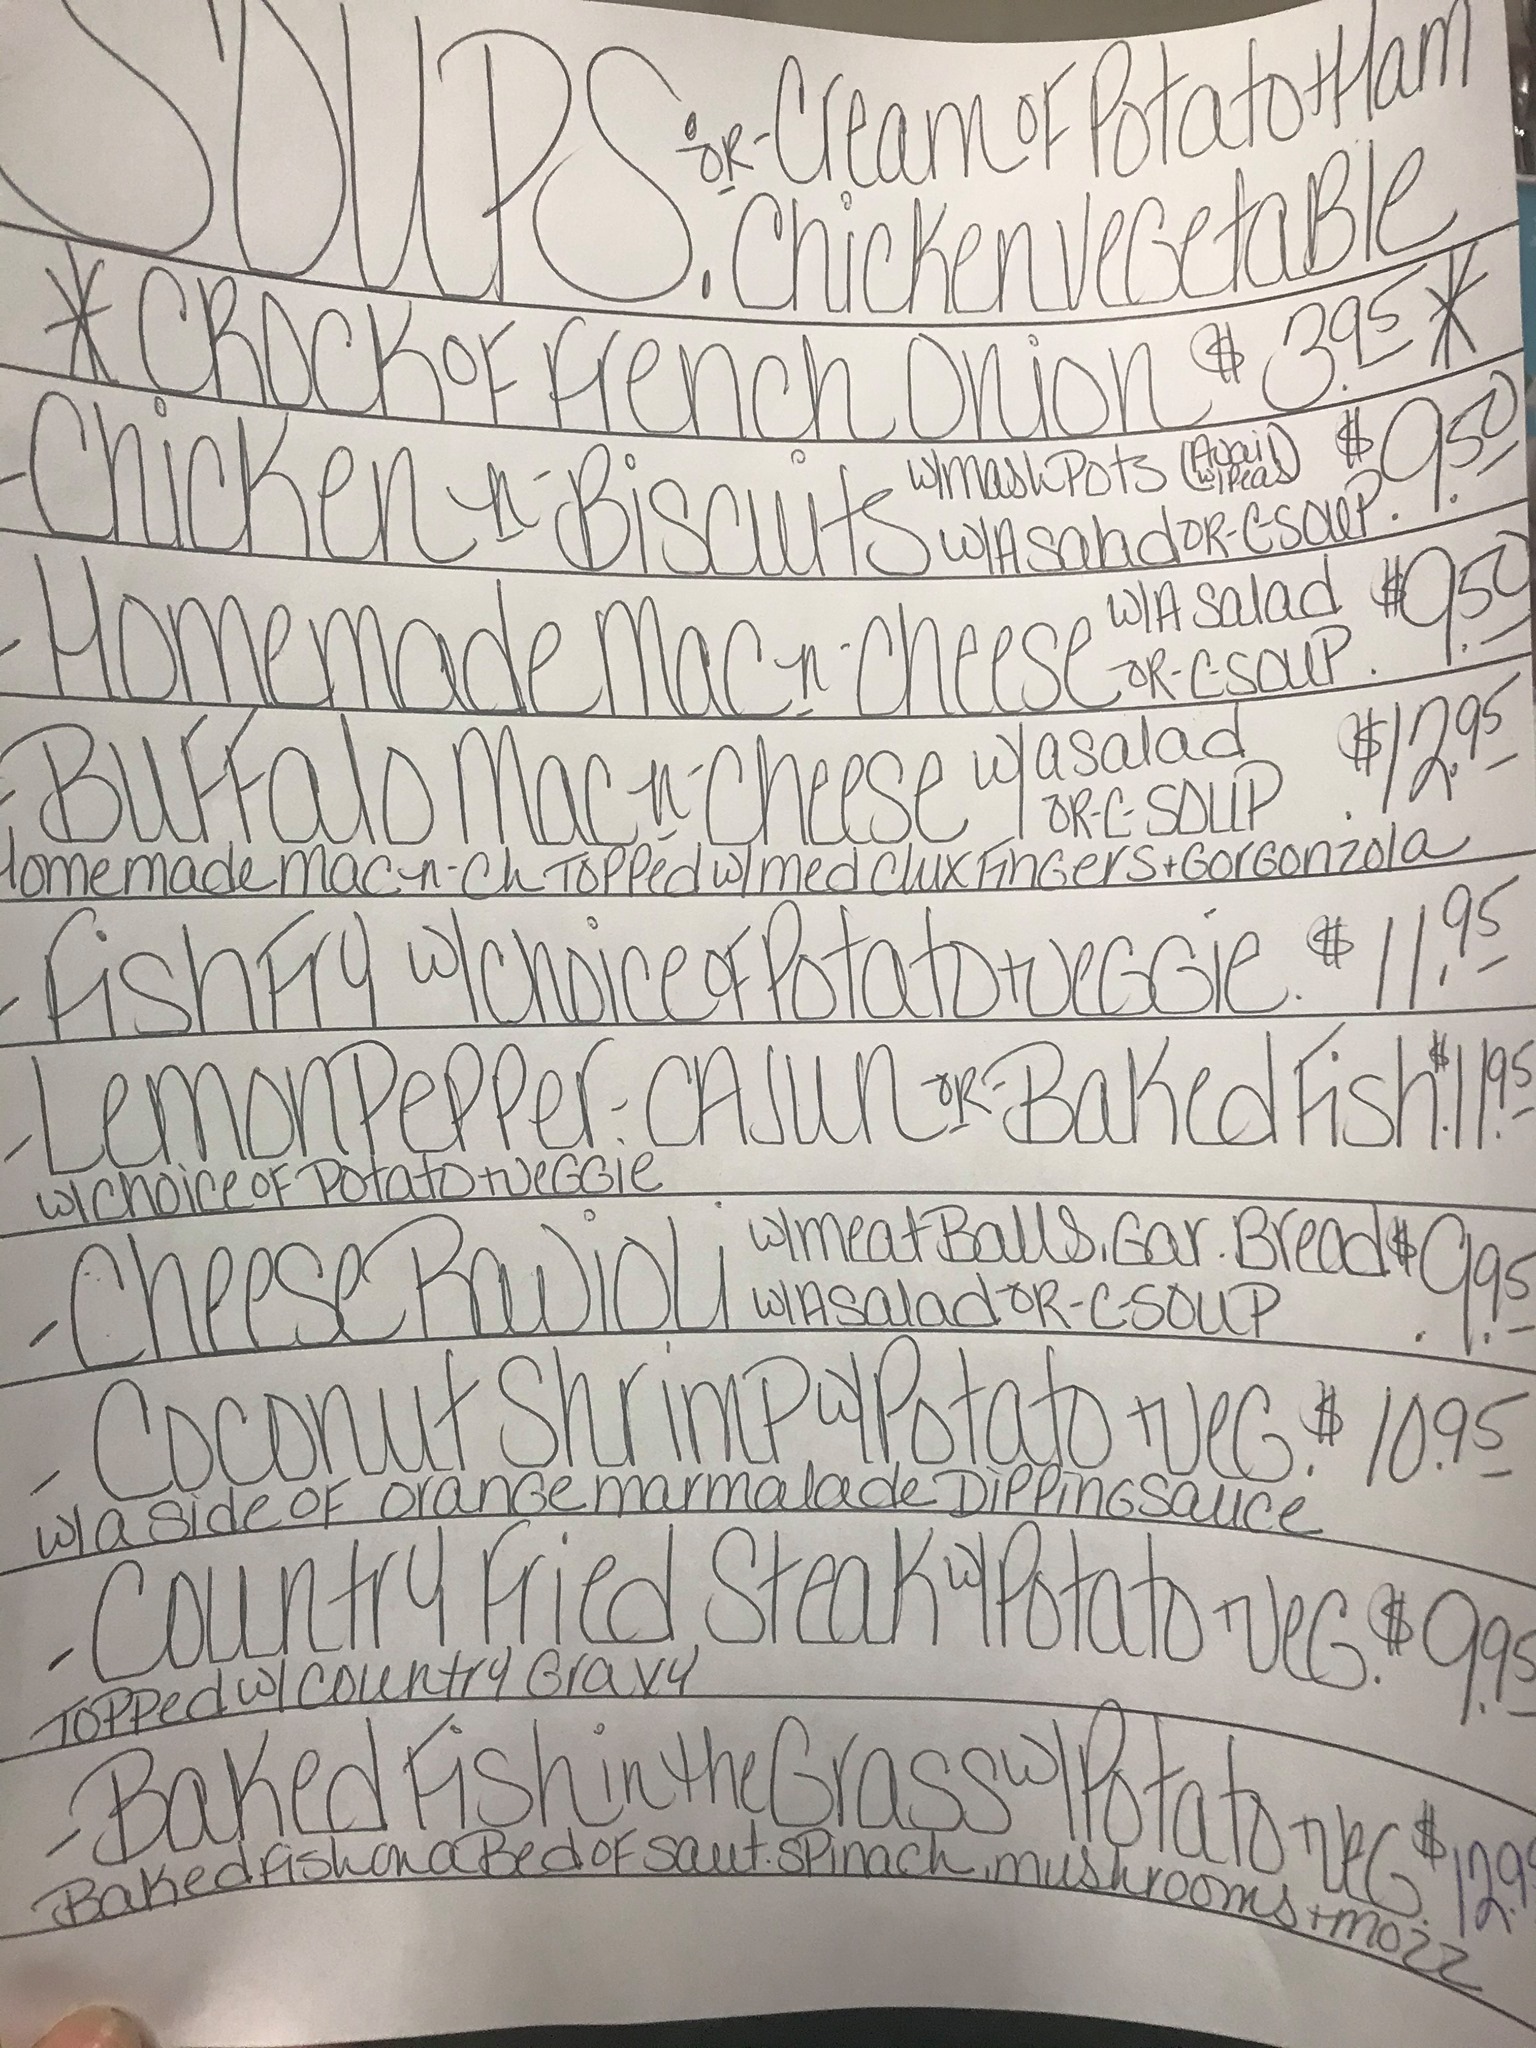 SOUPS: OR- Cream of Potato + Ham
. Chicken Vegetable
* Crock of French Onion $ 3.95 *
- Chicken -n- Biscuits w/mash Pots (Avail w/Peas) $ 9.50
w/A salad OR-C-SOUP.
- Homemade Mac -n- Cheese w/A salad $ 9.50
OR-C-SOUP.
- Buffalo Mac -n- Cheese w/a salad $ 12.95
OR-C-SOUP.
Homemade mac-n-ch Topped w/med Clux Fingers + Gorgonzola
- Fish Fry w/choice of Potato + veggie. $ 11.95
- Lemon Pepper - CAJUN OR- Baked Fish. $11.95
w/choice of Potato + veggie
- Cheese Ravioli w/meatBalls, Gar. Bread $ 9.95
w/A salad OR-C-SOUP.
- Coconut Shrimp w/Potato + veG. $ 10.95
w/a side of orange marmalade Dipping sauce
- Country Fried Steak w/Potato + veG. $ 9.95
Topped w/country Gravy
- Baked Fish in the Grass w/Potato + veG. $ 12.9
Baked fish on a Bed of saut. spinach, mushrooms + mozz